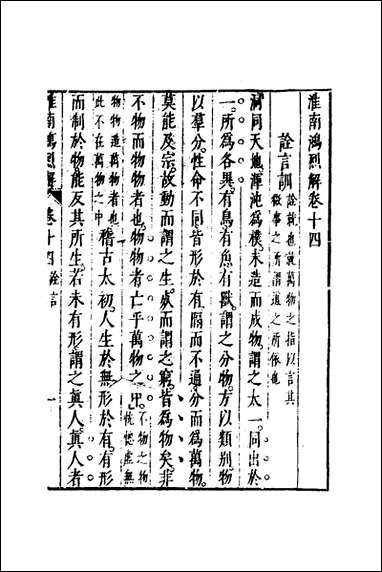 淮南鴻烈解卷十四
詮言訓
詮就也就萬物之指以言其
徵事之所謂道之所依也
洞同天地。渾沌爲樸。未造而成物。謂之太一。同出於
一。所爲各異。有鳥有魚有獸。謂之分物。方以類別。物
以羣分。性命不同。皆形於有。隔而不通。分而爲萬物。
莫能及宗。故動而謂之生。死而謂之窮。皆爲物矣。非
不物而物物者也。物物者亡乎萬物之中。
不物之物
恍惚虛無
物物造萬物者也
此不在萬物之中
稽古太初。人生於無。形於有。有形
而制於物。能反其所生。若未有形。謂之眞人。眞人者
淮南鴻烈解
卷十四 詮言
一